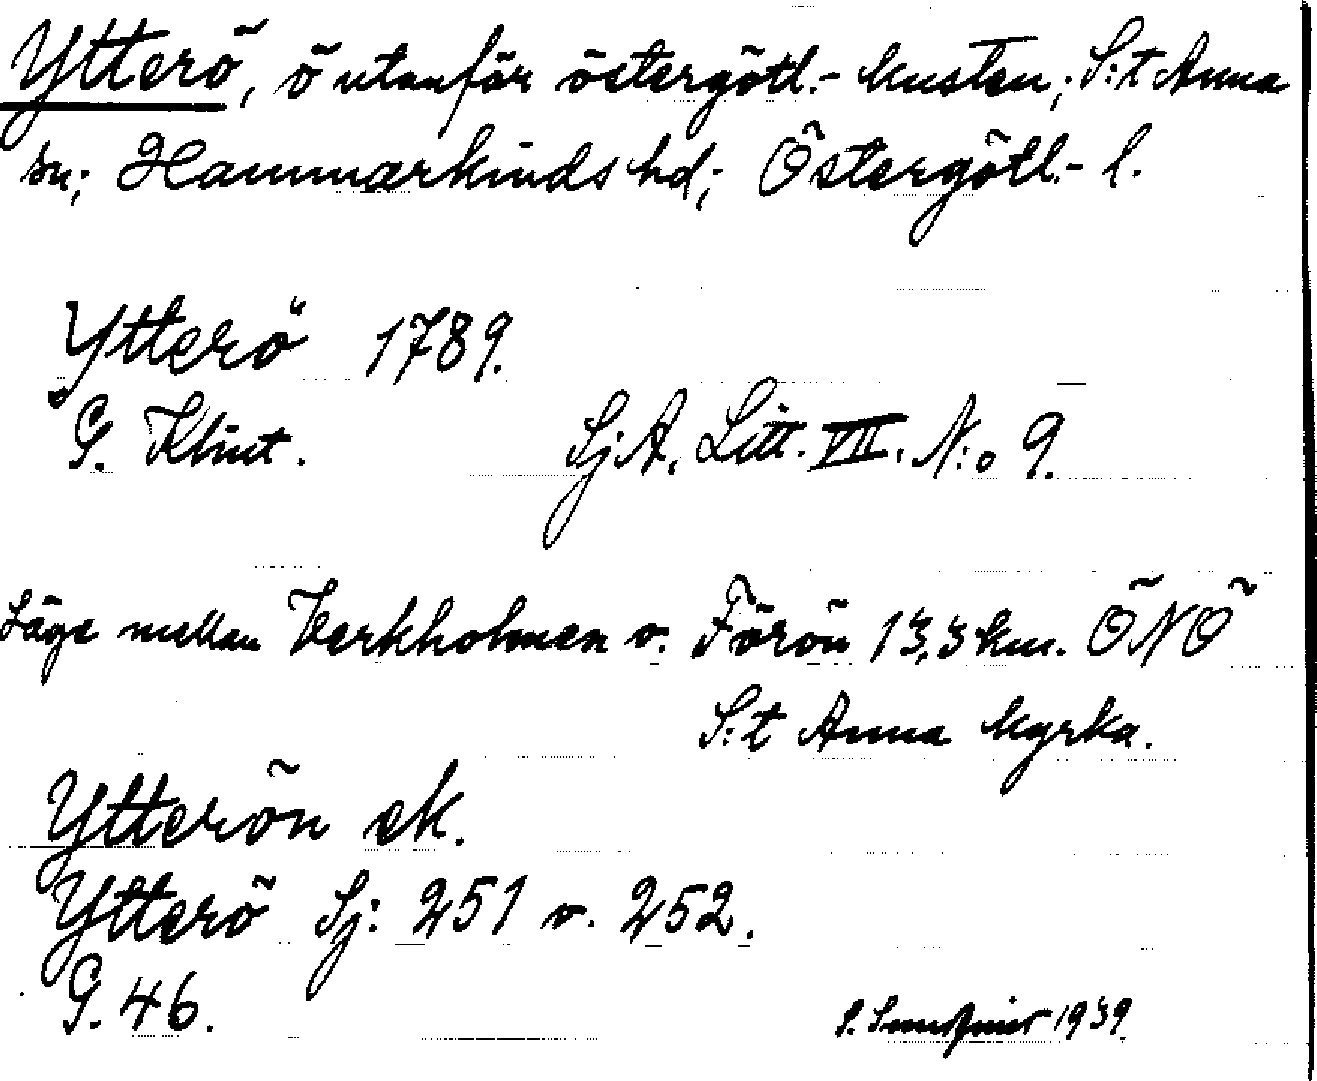 Ytterö, ö utanför östergötl.- kusten; S:t Anna
sn; Hammarkinds hd; Östergötl.- l.
Ytterö 1789.
G. Klint. SjA. Litt. VII. N:o 9.
Läge mellan Verkholmen o. Förön 13,3 km. ÖNÖ
S:t Anna kyrka.
Ytterön ek.
Ytterö Sj: 251 o. 252.
G. 46.
1939.